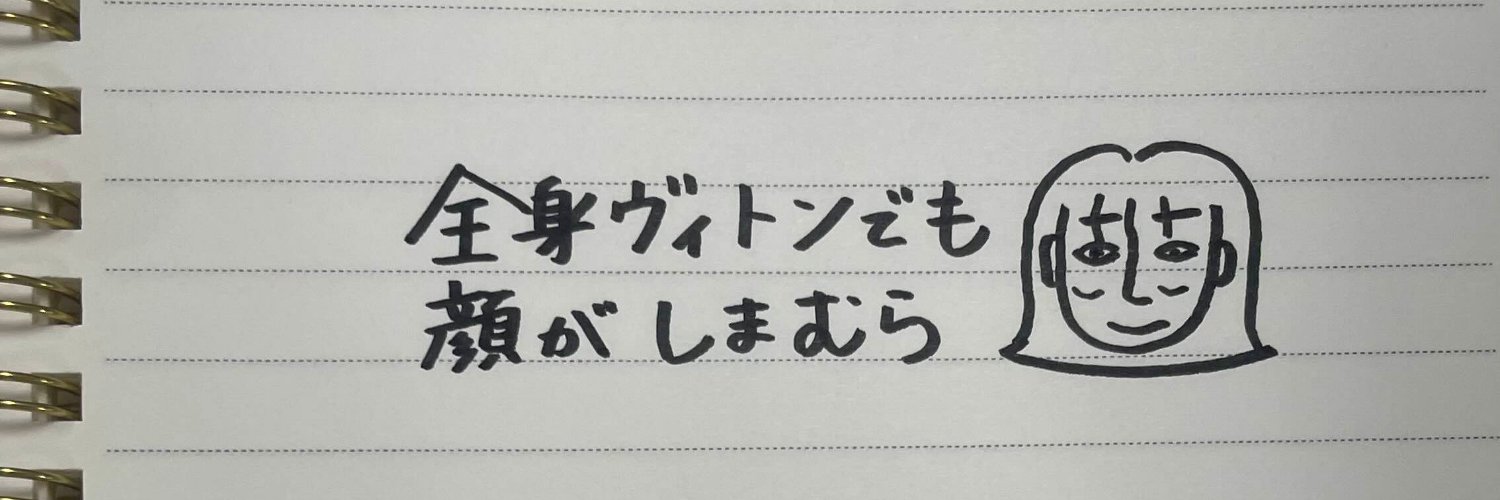 全身ヴィトンでも
顔がしまむら